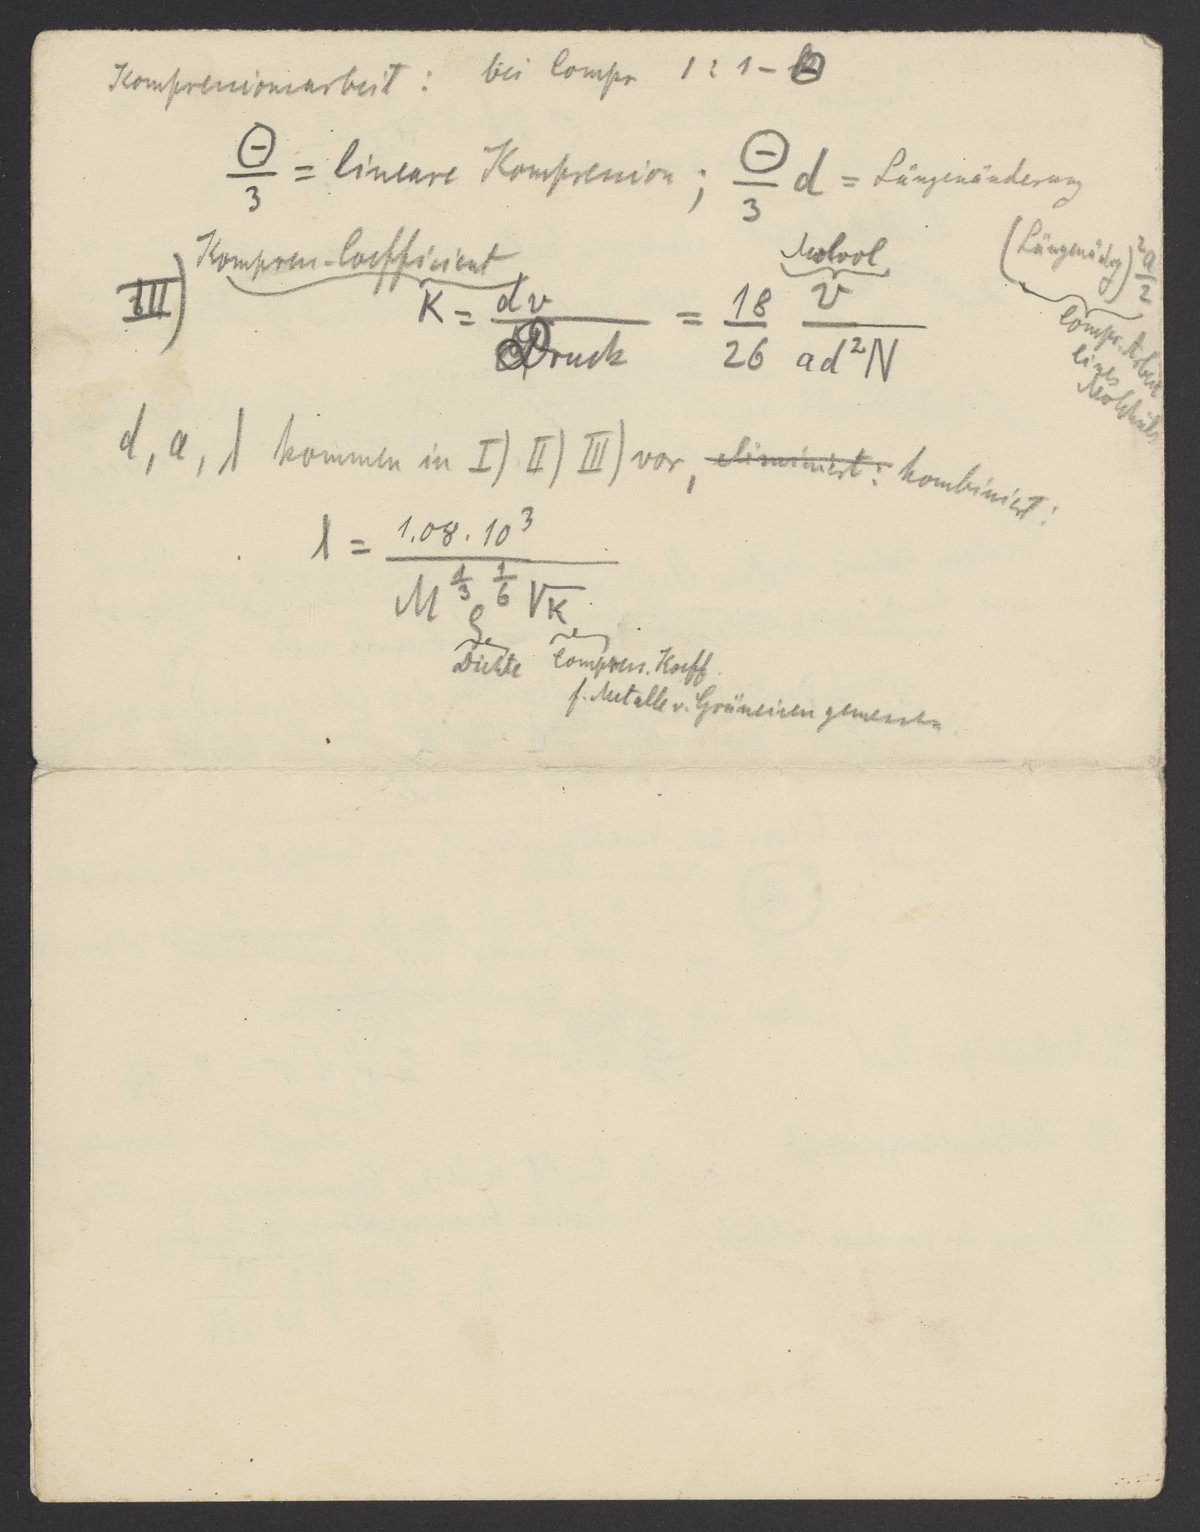 Kompressionsarbeit : bei Compr 1 : 1 - Θ
Θ/3 = lineare Kompression ; Θ/3 d = Längenänderung
Kompress-Coefficient
Molvol
(Längenändg)² a/2
Compr. Arbeit
eines
Moleküls
III) K = dv/Druck = 18/26 v/ad²N
d, a, λ kommen in I) II) III) vor, eliminiert : kombiniert :
λ = 1.08 · 10³ / M^1/3 ρ^1/6 √K
Dichte Compress. Koeff.
f. Metalle v. Grüneisen gemessen.